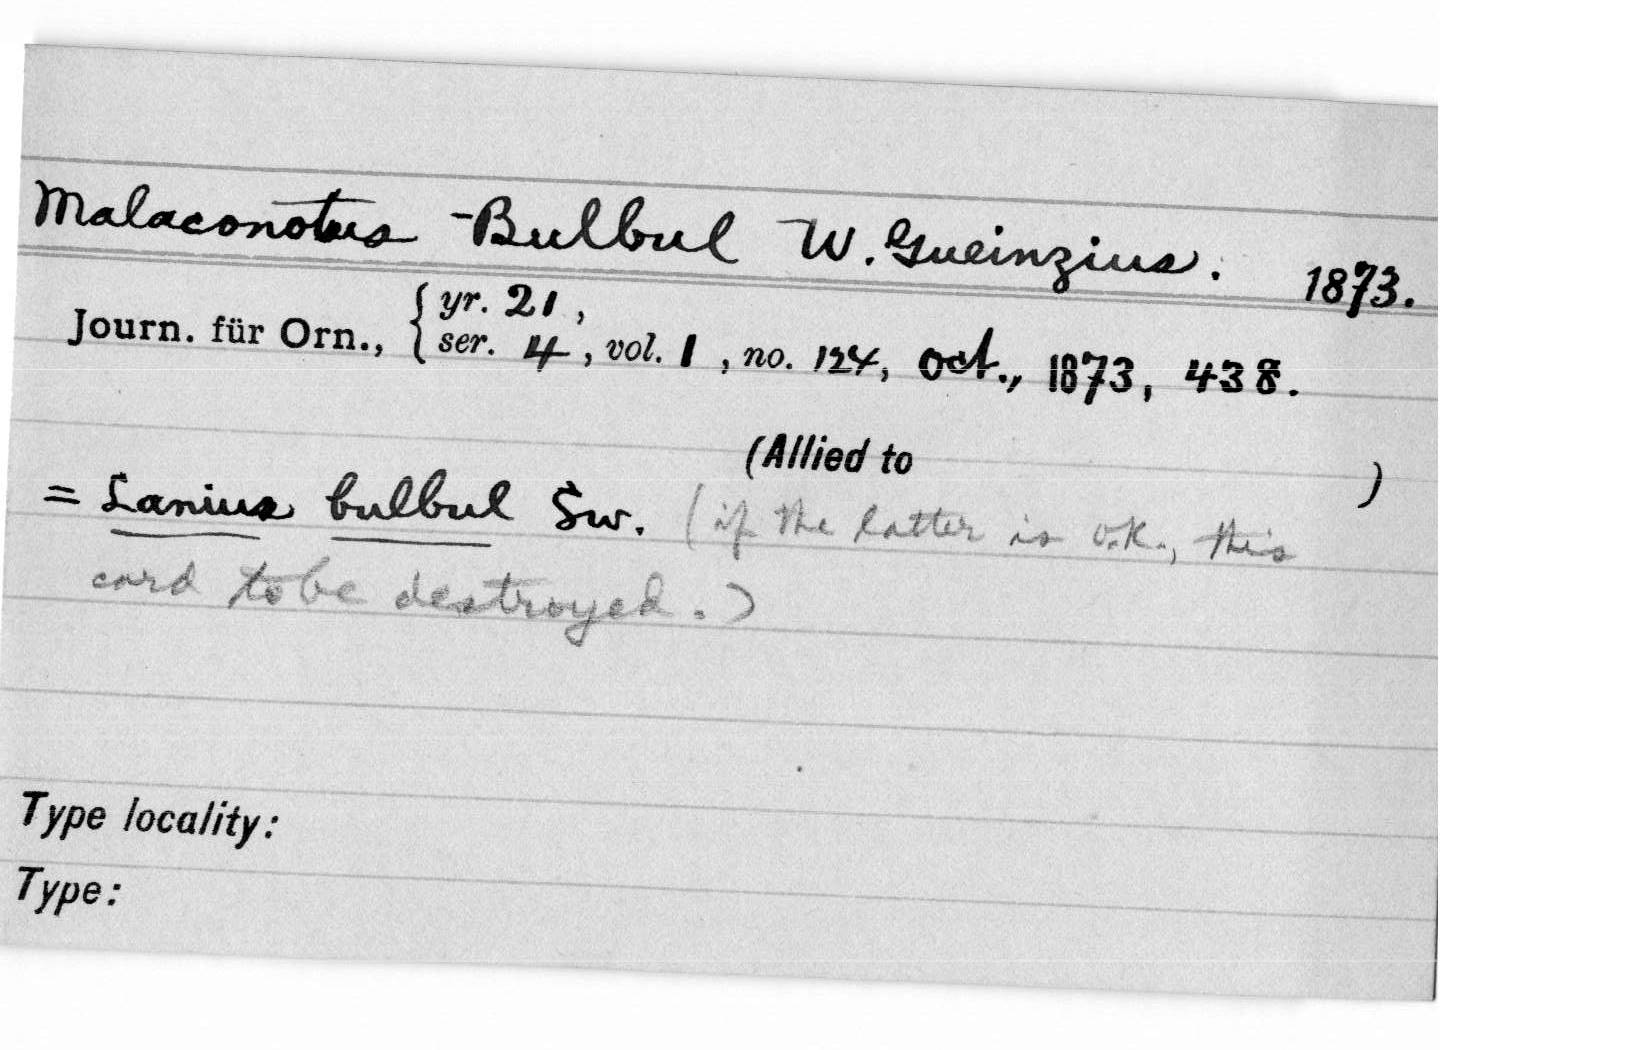 Malaconotus Bulbul W. Gueinzius. 1873.
Journ. für Orn., { yr. 21,
ser. 4, vol. 1, no. 124, Oct., 1873, 438.
(Allied to )
= Lanius bulbul Sw. (if the latter is o.k., this
card to be destroyed.)
Type locality:
Type: